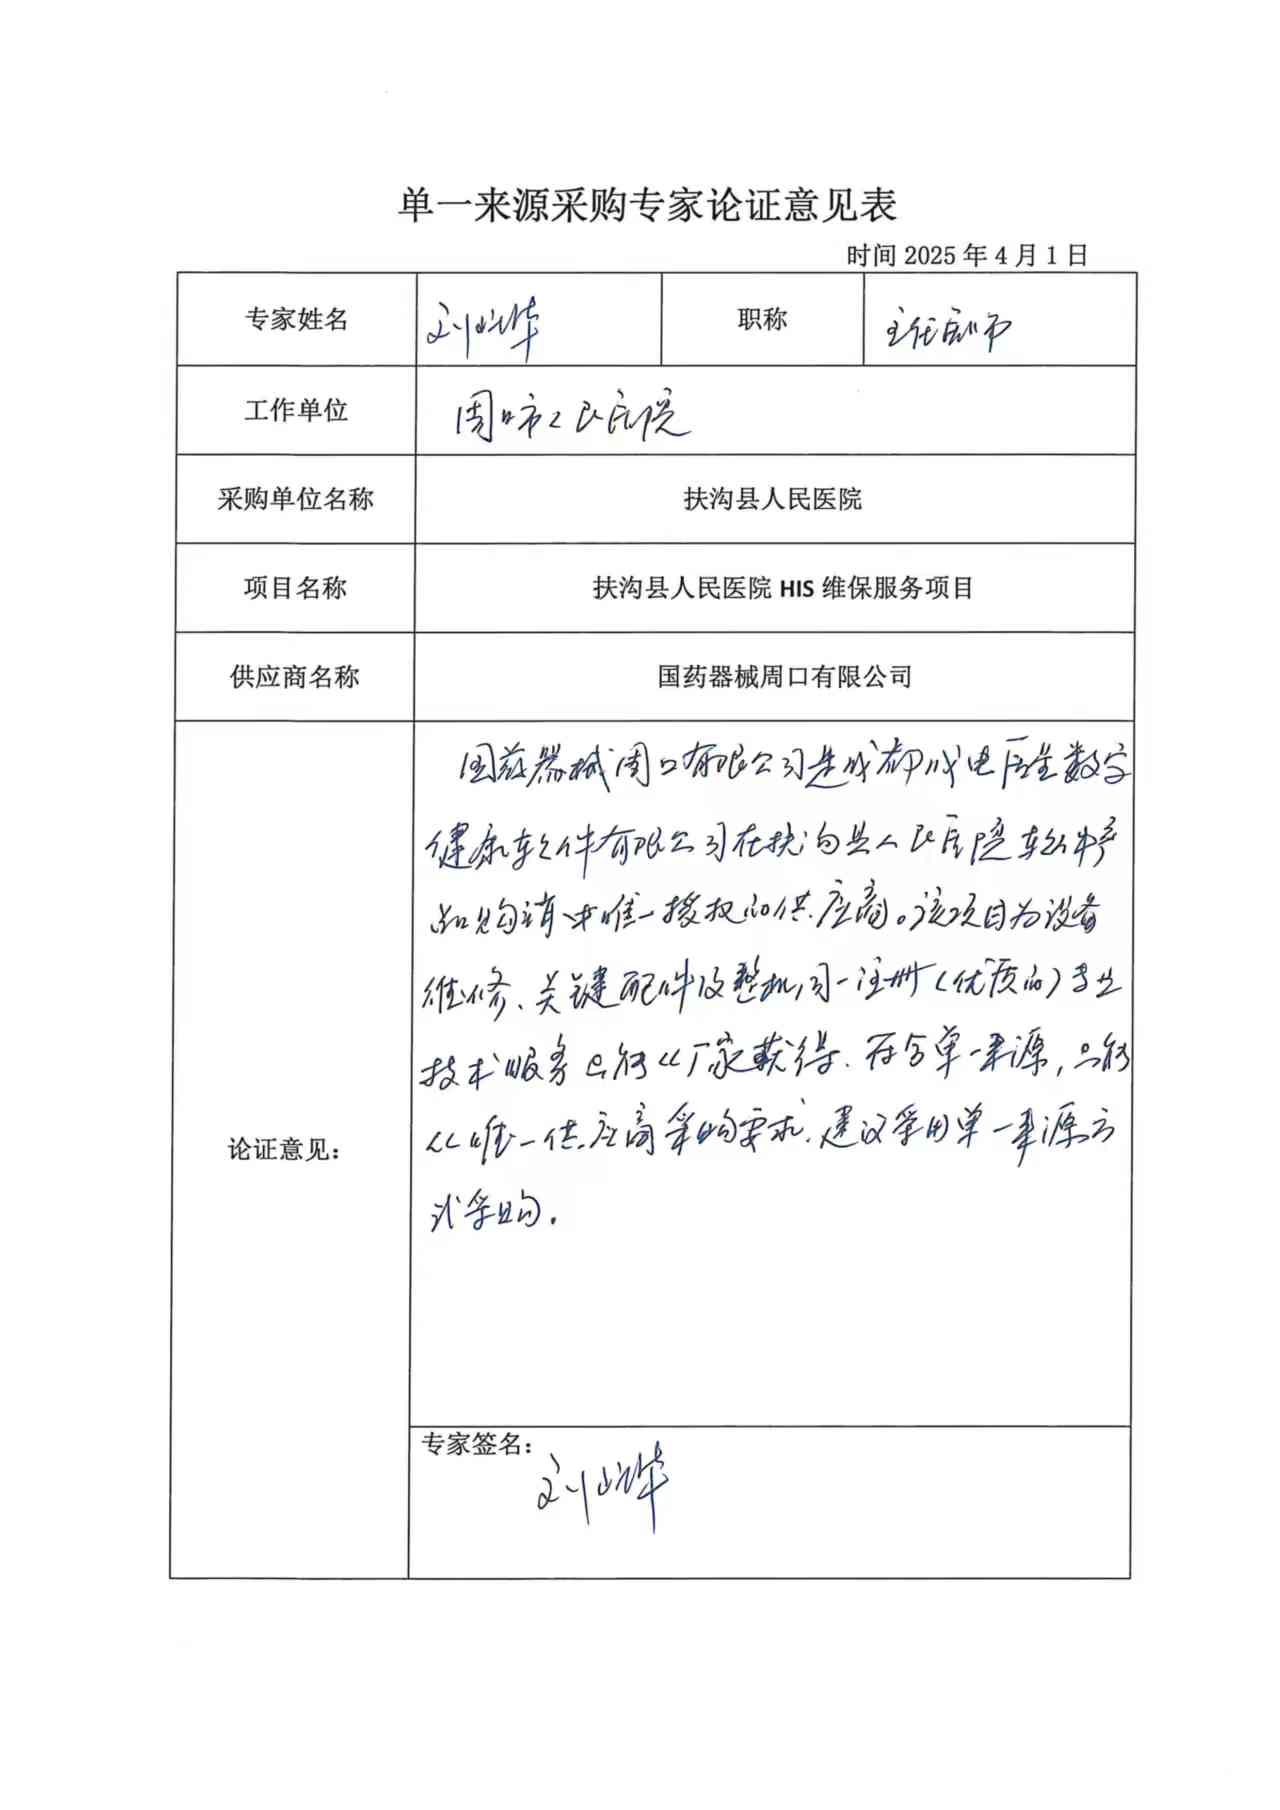 单一来源采购专家论证意见表
时间 2025 年 4 月 1 日
专家姓名 刘 华 职称 主任医师
工作单位 周口市人民医院
采购单位名称 扶沟县人民医院
项目名称 扶沟县人民医院 HIS 维保服务项目
供应商名称 国药器械周口有限公司
论证意见：
国药器械周口有限公司是成都成电医星数字
健康软件有限公司在扶沟县人民医院软件产
品购销中唯一授权的供应商。该项目为设备
维修、关键配件及整机同一注册（优质的）专业
技术服务只能从厂家获得.符合单一来源，只能
从唯一供应商采购要求.建议采用单一来源方
式采购.
专家签名：
刘 华